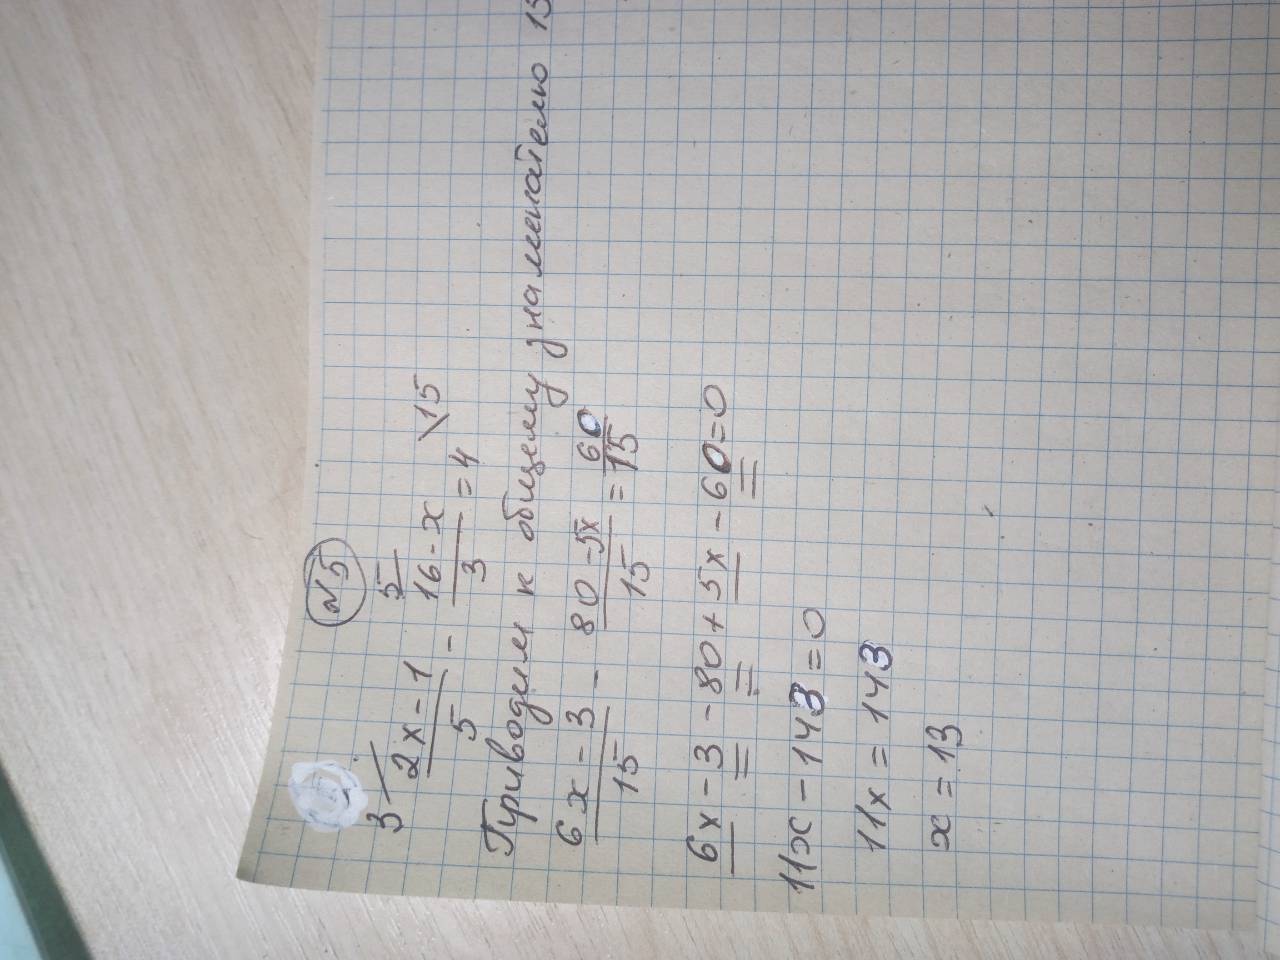 №5
3/ 5
2x-1/5 - 16-x/3 = 4 \15
Приводим к общему знаменателю 15
6x-3/15 - 80-5x/15 = 60/15
6x-3-80+5x-60=0
11x-143=0
11x=143
x=13